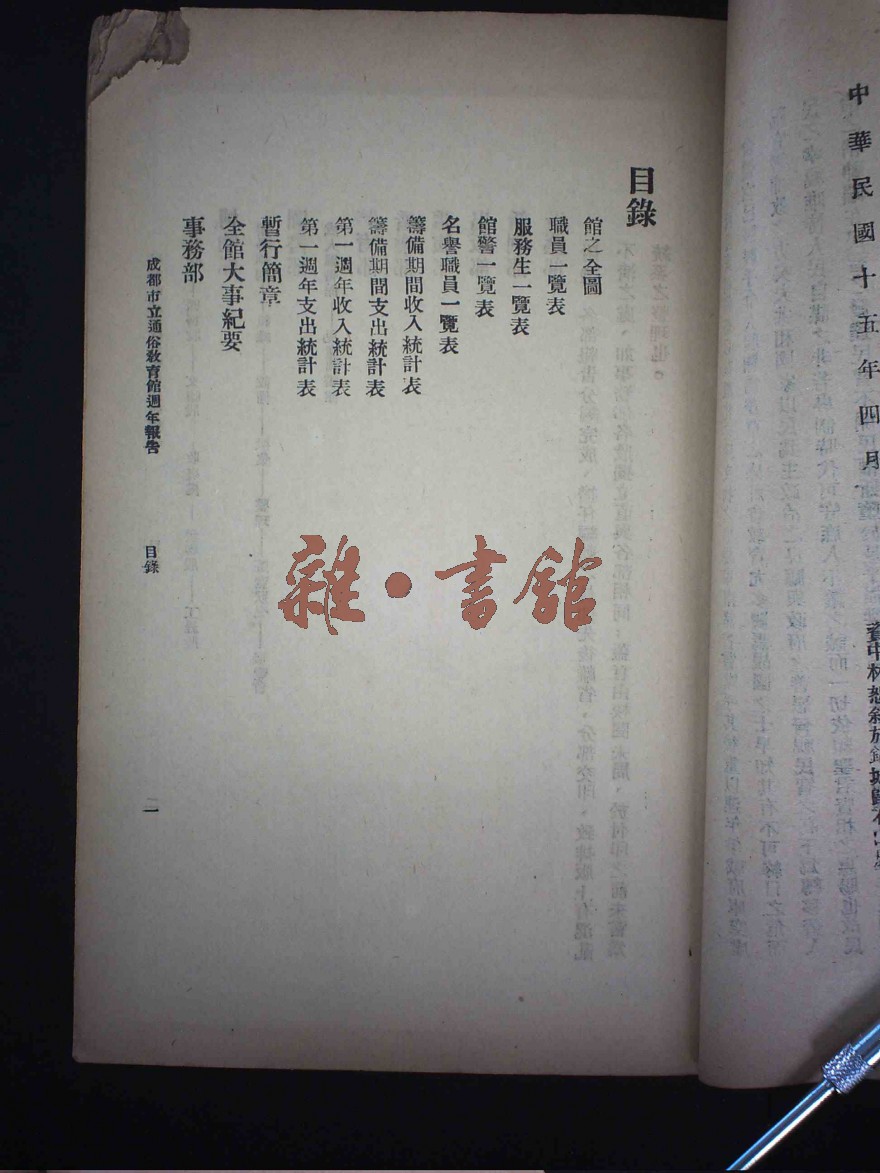 中華民國十五年四月
目錄
館之全圖
職員一覽表
服務生一覽表
館警一覽表
名譽職員一覽表
籌備期間收入統計表
籌備期間支出統計表
第一週年收入統計表
第一週年支出統計表
暫行簡章
全館大事紀要
事務部
成都市立通俗敎育館週年報告 目錄 二
雜·書館